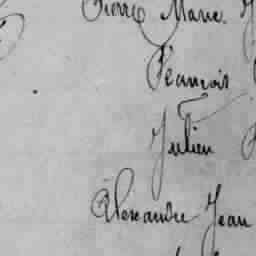 Pierre Marie
Francois
Julien
Alexandre Jean